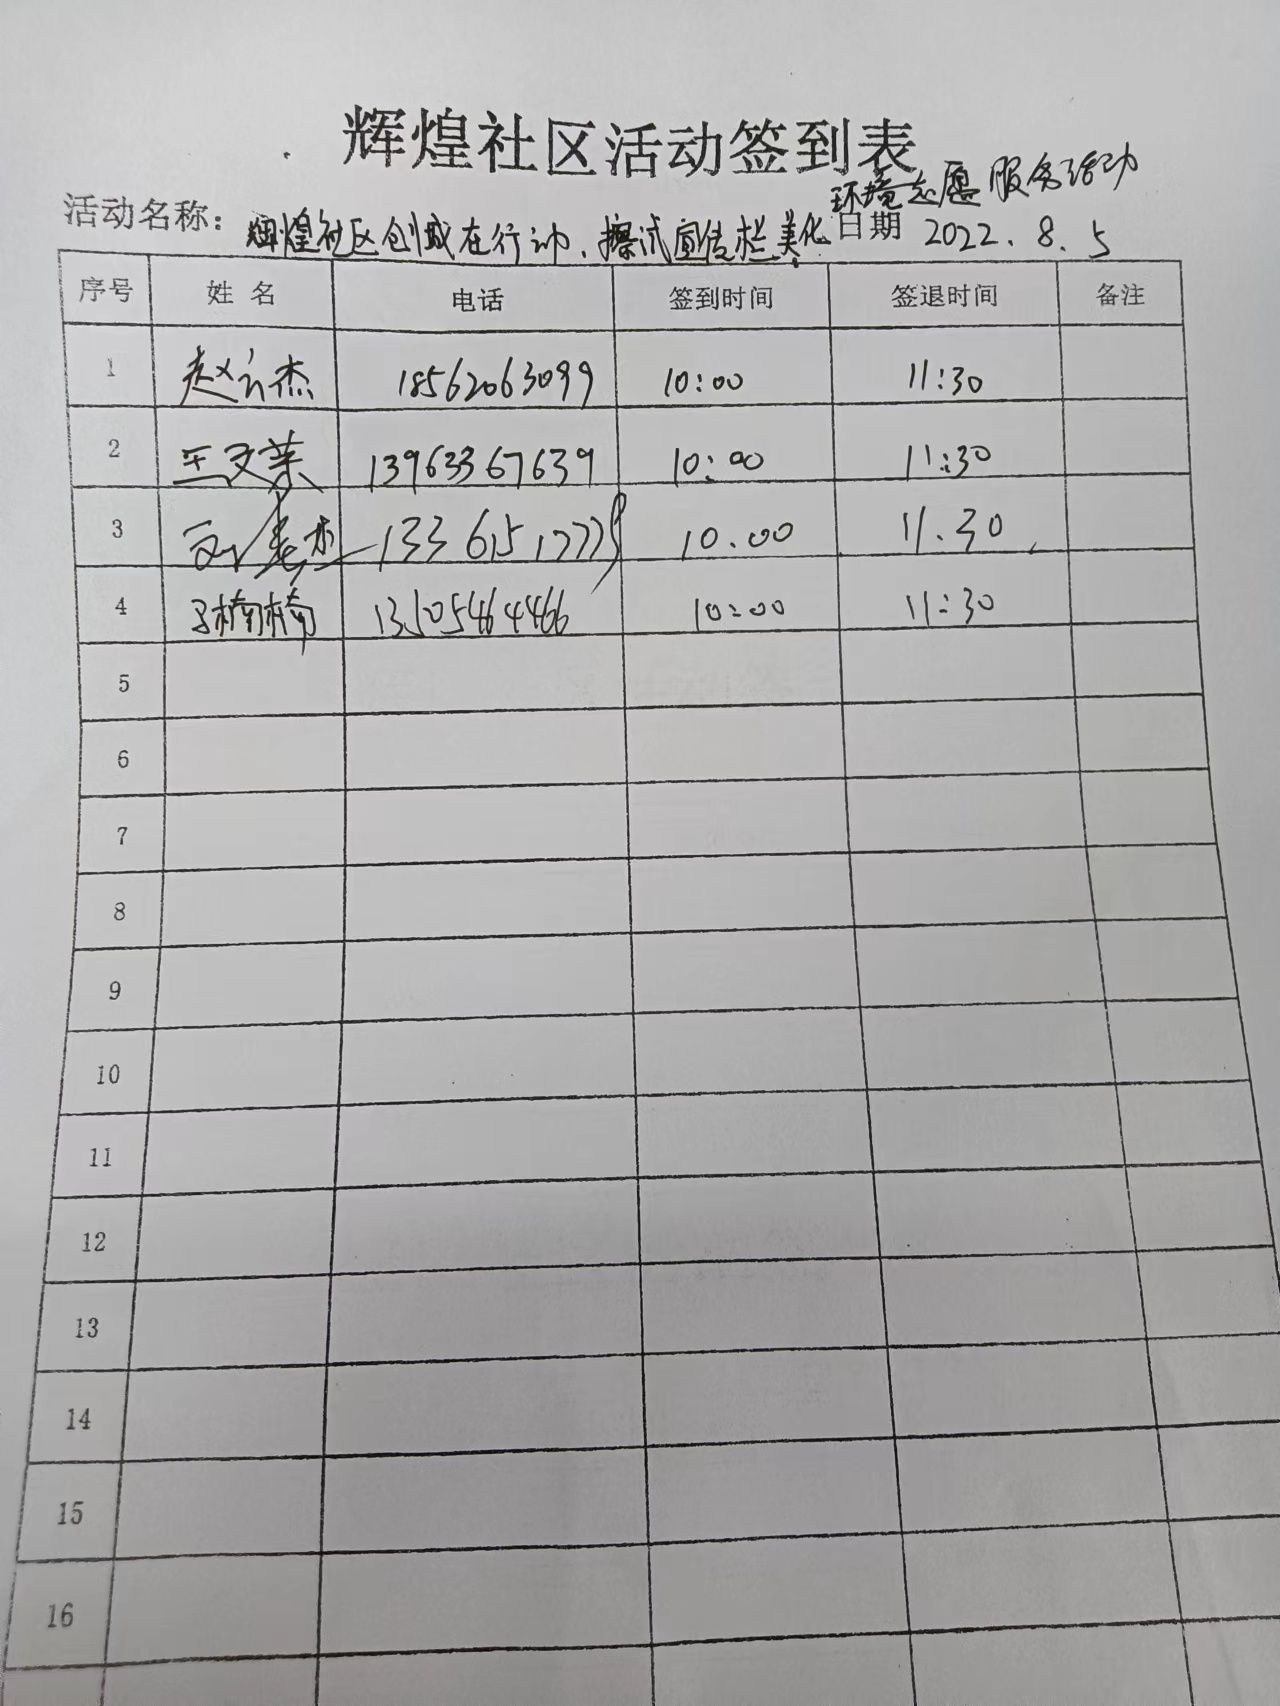 辉煌社区活动签到表
环境志愿服务活动
活动名称： 辉煌社区创城在行动、擦试宣传栏美化 日期 2022.8.5
序号 姓名 电话 签到时间 签退时间 备注
1 赵云杰 18562063099 10:00 11:30
2 王文荣 13963367639 10:00 11:30
3 10.00 11.30
4 楠楠 13505464466 10:00 11:30
5
6
7
8
9
10
11
12
13
14
15
16